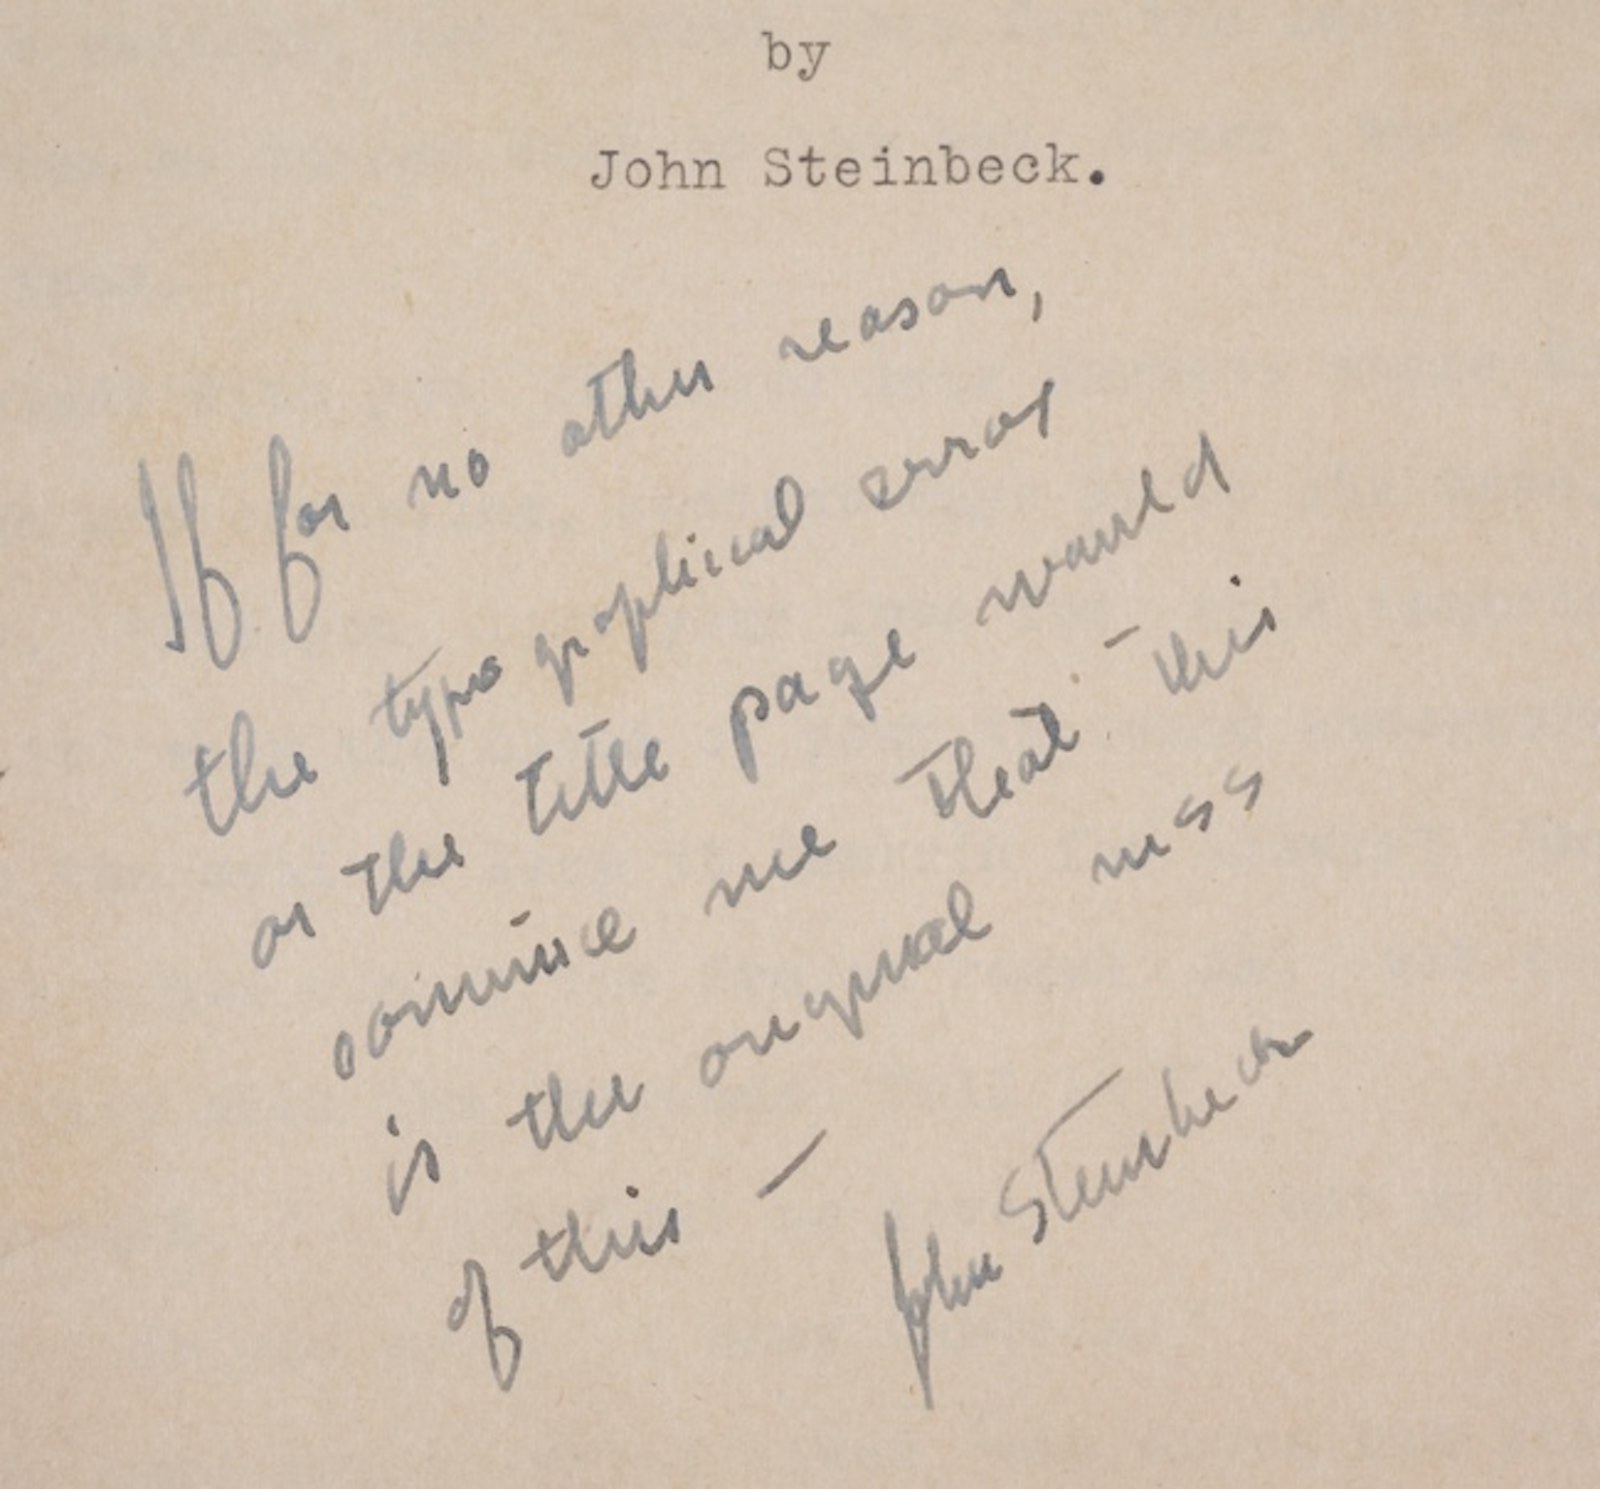 by
John Steinbeck.
If for no other reason,
the typographical error
on the title page would
convince me that - this
is the original mss
of this —
John Steinbeck